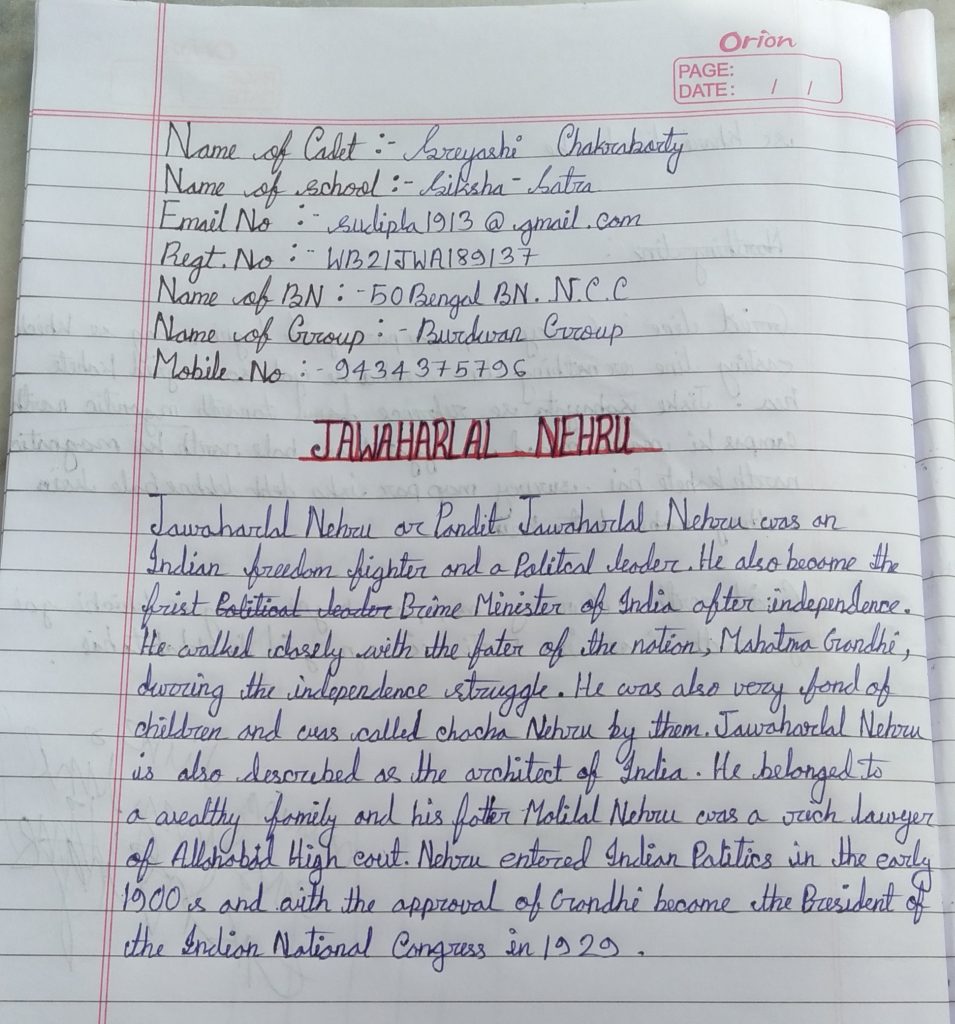 Orion
PAGE:
DATE: / /
Name of Cadet :- Sreyashi Chakraborty
Name of school :- Siksha - Satra
Email No :- sudipta1913@gmail.com
Regt. No :- WB21JWA189137
Name of BN :- 50 Bengal BN. N.C.C
Name of Group :- Burdwan Group
Mobile. No :- 9434375796
JAWAHARLAL NEHRU
Jawaharlal Nehru or Pandit Jawaharlal Nehru was an
Indian freedom fighter and a Politcal leader. He also become the
frist Political leader Prime Minister of India after independence.
He walked closely with the fater of the nation, Mahatma Gandhi,
during the independence struggle. He was also very fond of
children and was called chacha Nehru by them. Jawaharlal Nehru
is also described as the architect of India. He belonged to
a wealthy family and his fatter Motilal Nehru was a rich lawyer
of Allahabad High cout. Nehru entered Indian Politics in the early
1900s and with the approval of Gandhi become the President of
the Indian National Congress in 1929.